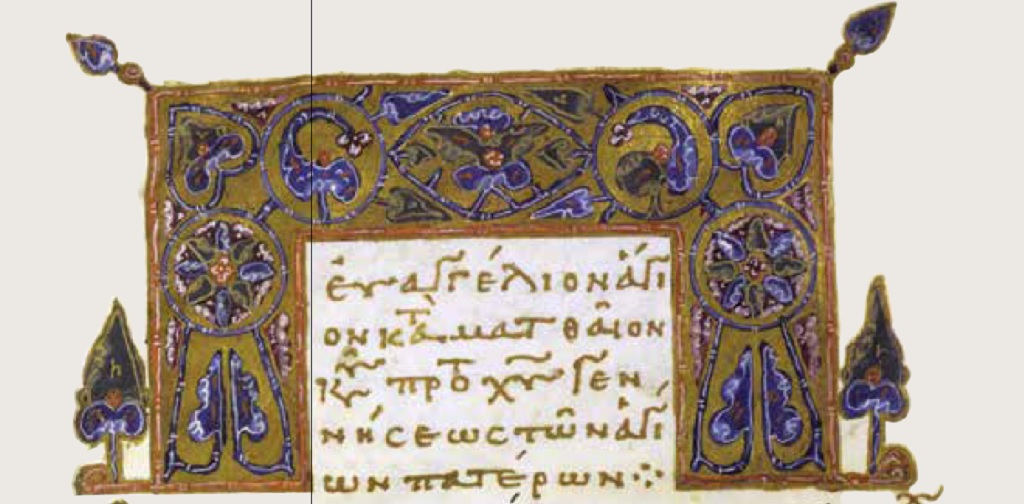 ἐυαγγέλιον ἅγι
ον κατὰ ματθαῖον
κυ πρὸ τ χυ γεν
νήσεως τῶν ἁγί
ων πατέρων ⁘